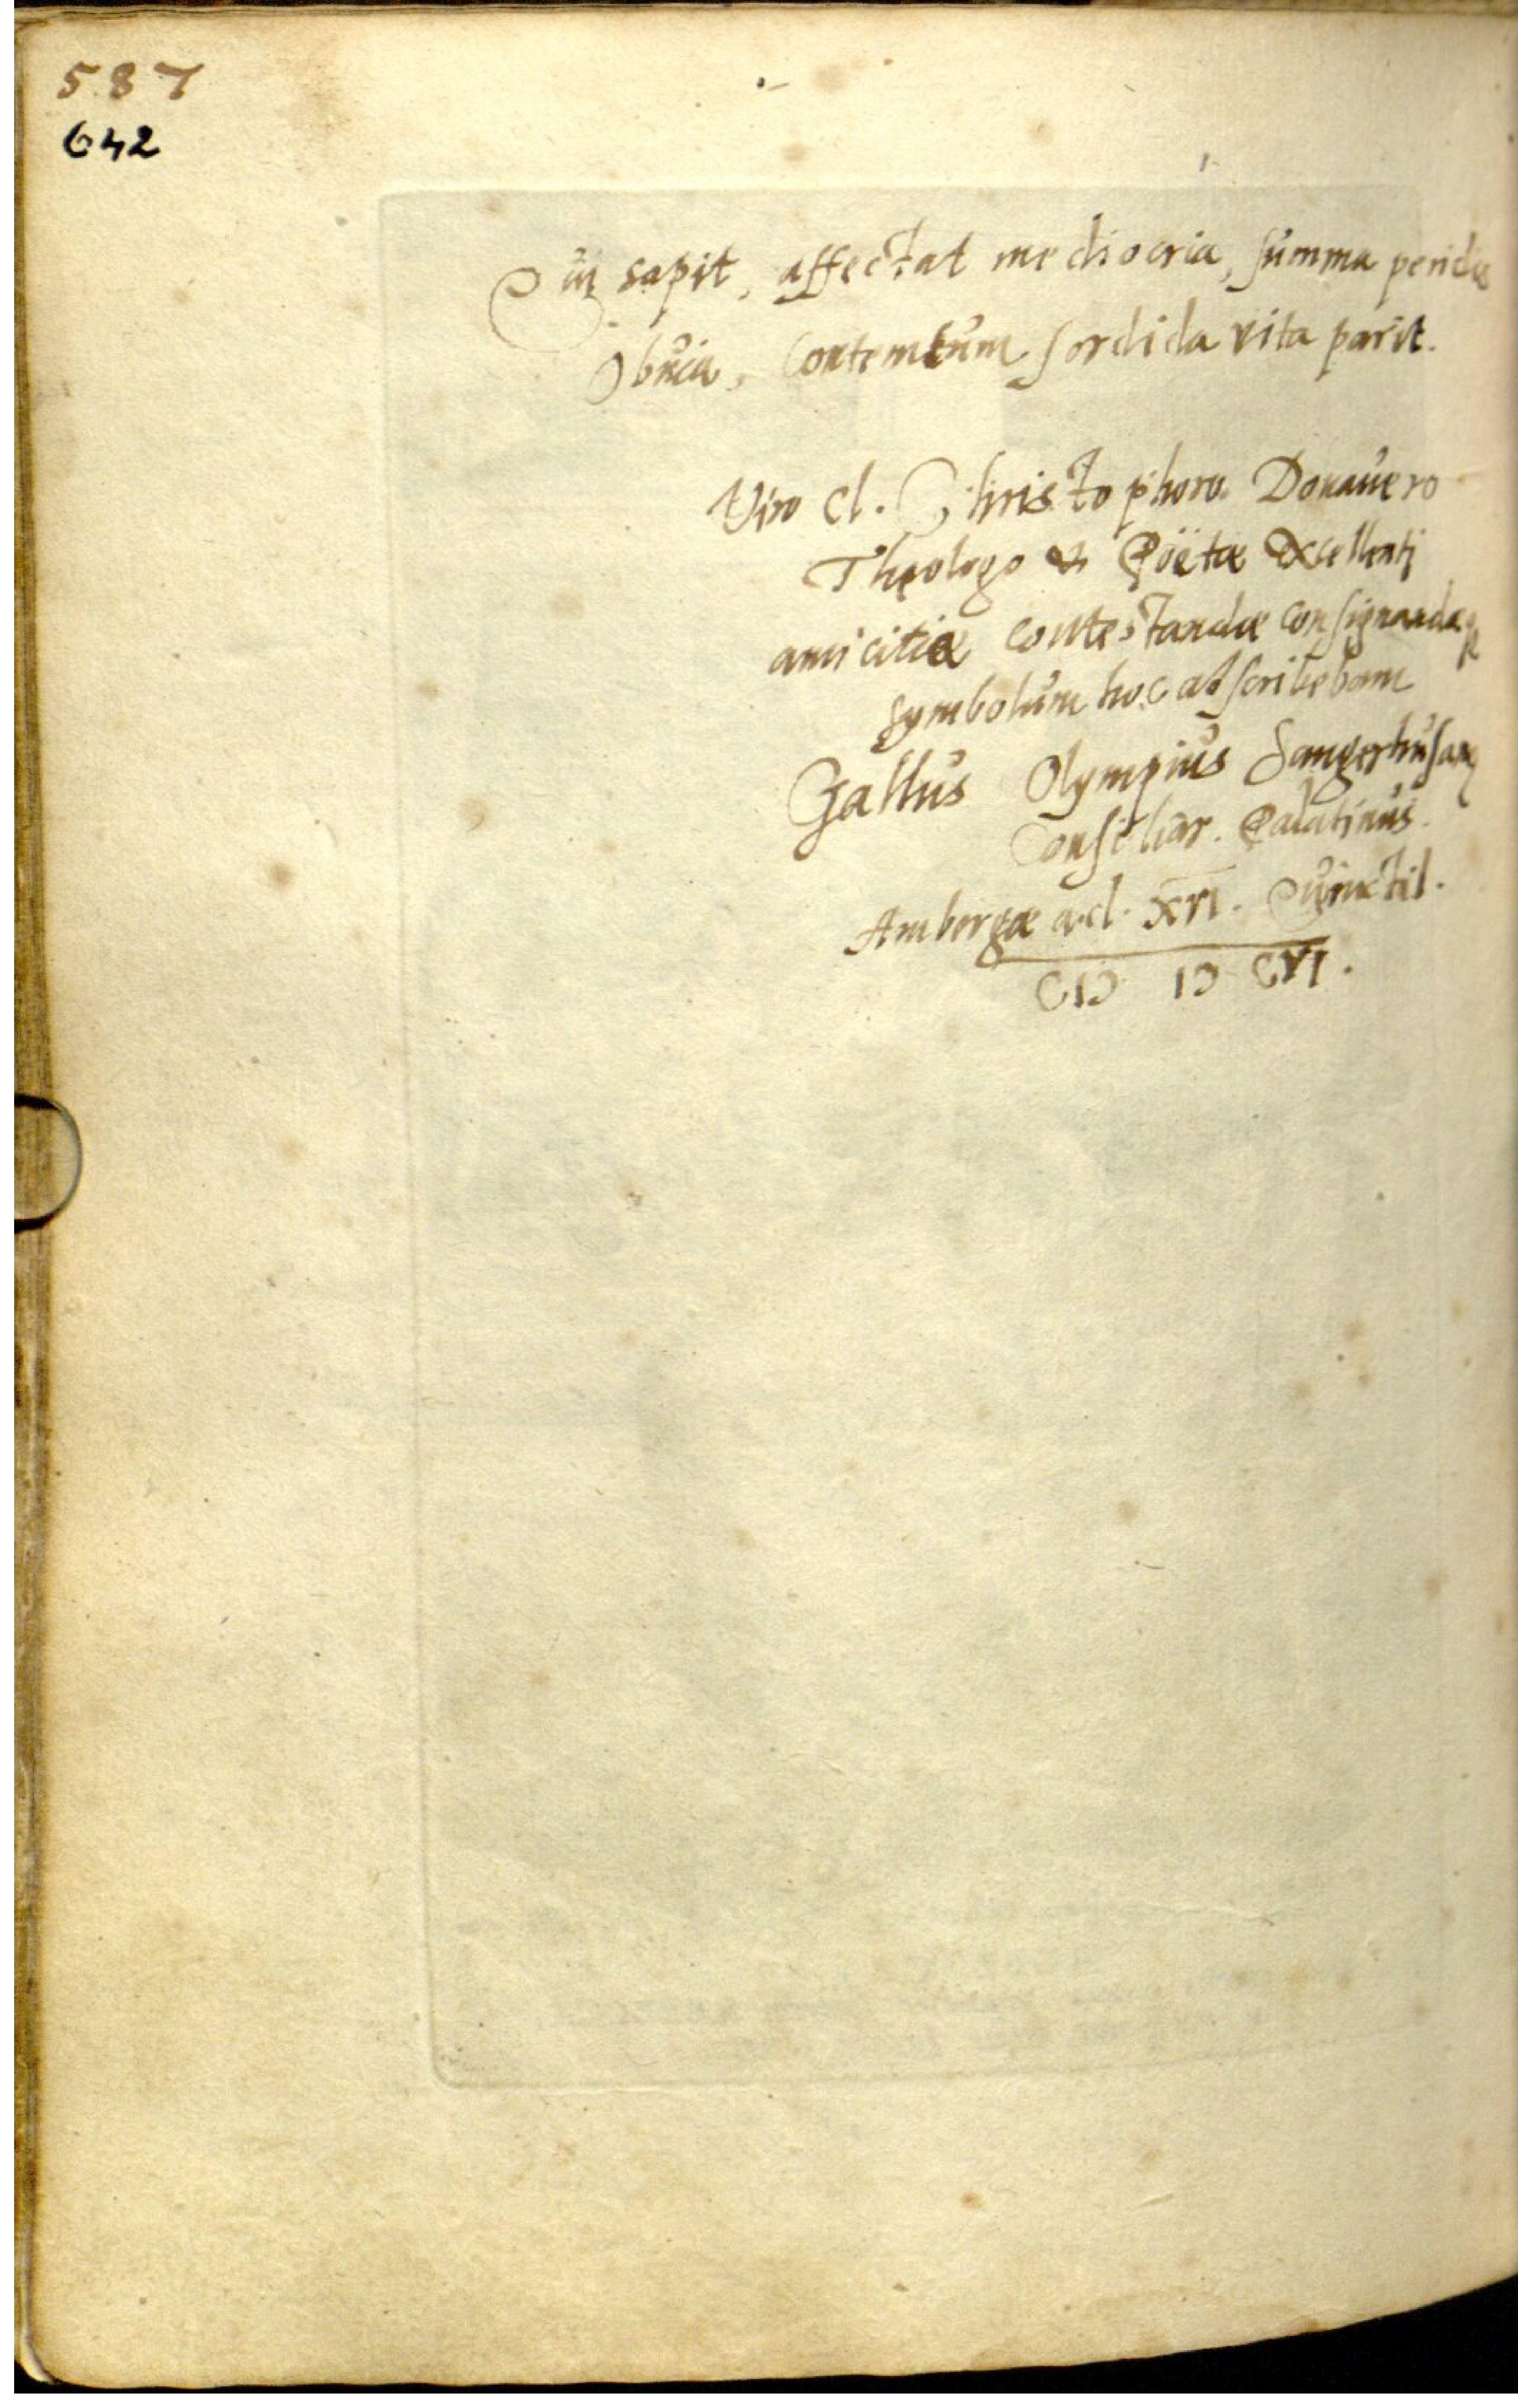 587
642
Qui sapit, affectat mediocria, summa periclis
Obvia, Contemtum sordida vita parit.
Viro Cl. Christophoro Donavero
Theologo & Poëtae Excellenti
amicitiae contestandae consignandaeq
symbolum hoc adscribebam
Gallus Olympius Sangerhusanus
Consiliar. Palatinus.
Ambergae a.d. XVI. Quinctil.
CIƆ IƆ CVI.